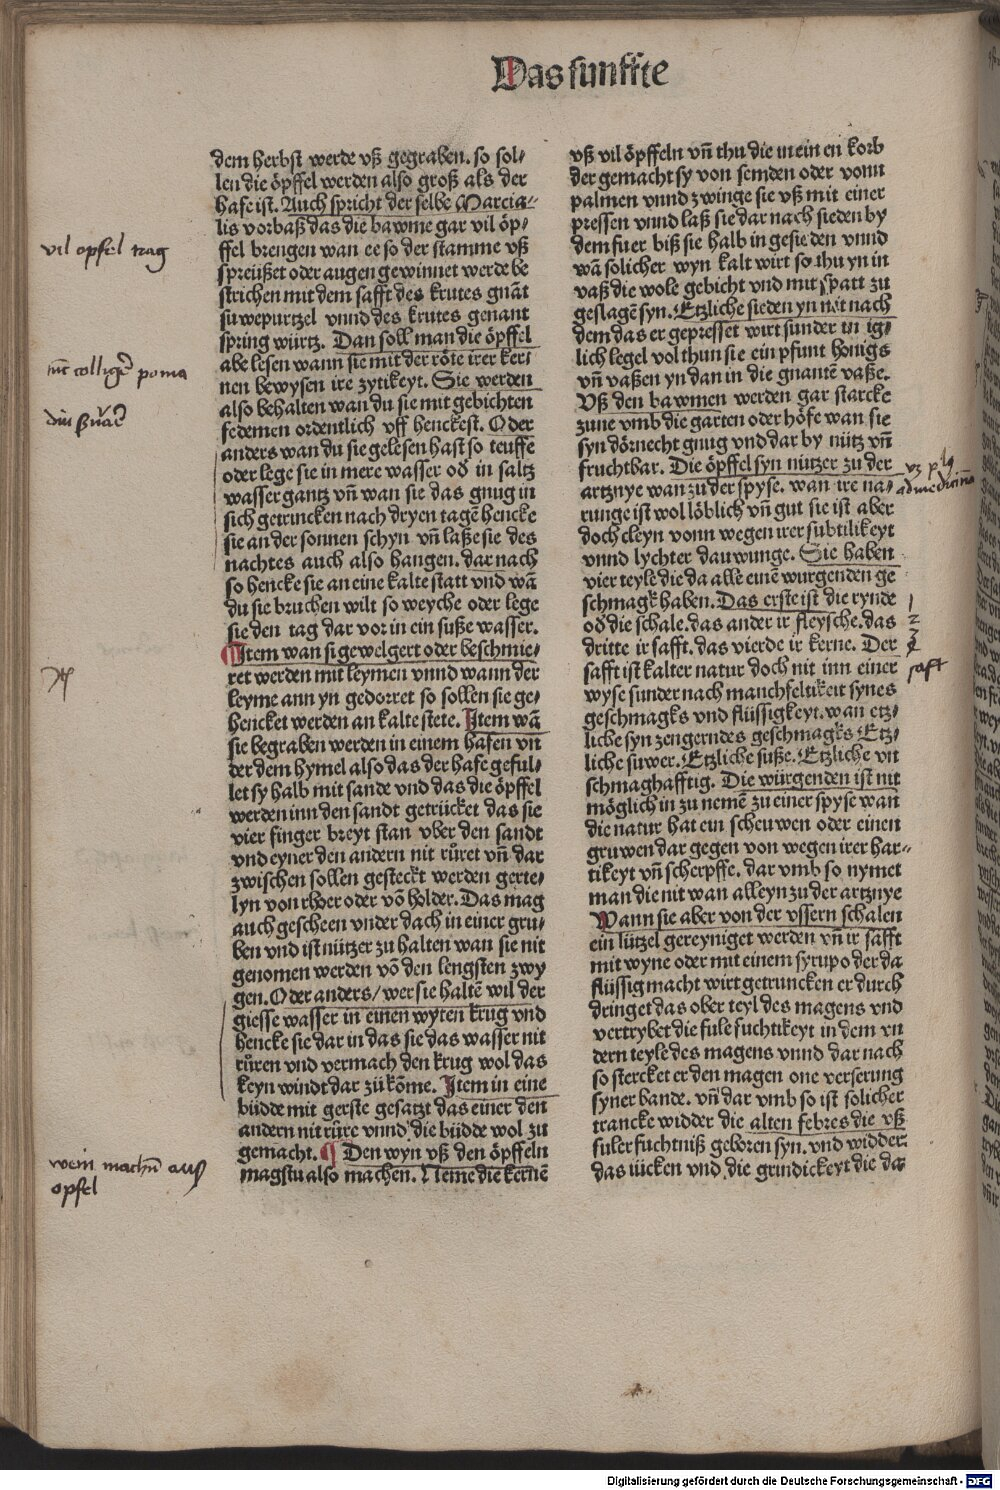 Das funffte
dem herbst werde vß gegraben. so sol⸗
len die öpffel werden also groß als der
hafe ist. Auch spricht der selbe Marcia⸗
lis vorbaß das die bawme gar vil öp⸗
ffel brengen wan ee so der stamme vß
spreüßet oder augen gewinnet werde be
strichen mit dem safft des krutes gnāt
suwepurtzel vnnd des krutes genant
spring würtz. Dan soll man die öpffel
abe lesen wann sie mit der röte irer ker⸗
nen bewysen ire zytikeyt. Sie werden
also behalten wan du sie mit gebichten
fedemen ordentlich vff henckest. Oder
anders wan du sie gelesen hast so teuffe
oder lege sie in mere wasser od in saltz
wasser gantz vn̄ wan sie das gnug in
sich getrincken nach dryen tagē hencke
sie an der sonnen schyn vn̄ laße sie des
nachtes auch also hangen. dar nach
so hencke sie an eine kalte statt vnd wā
du sie bruchen wilt so weyche oder lege
sie den tag dar vor in ein suße wasser.
Item wan si gewelgert oder beschmie⸗
ret werden mit leymen vnnd wann der
leyme ann yn gedorret so sollen sie ge⸗
hencket werden an kalte stete. Item wā
sie begraben werden in einem hafen vn
der dem hymel also das der hafe geful⸗
let sy halb mit sande vnd das die öpffel
werden inn den sandt getrücket das sie
vier finger breyt stan vber den sandt
vnd eyner den andern nit růret vn̄ dar
zwischen sollen gesteckt werden gerte⸗
lyn von rhoer oder vō holder. Das mag
auch gescheen vnder dach in einer gru⸗
ben vnd ist nützer zu halten wan sie nit
genomen werden vō den lengsten zwy
gen. Oder anders/ wer sie haltē wil der
giesse wasser in einen wyten krug vnd
hencke sie dar in das sie das wasser nit
rüren vnd vermach den krug wol das
keyn windt dar zü kōme. Item in eine
büdde mit gerste gesatzt das einer den
andern nit rûre vnnd die büdde wol zu
gemacht. ¶ Den wyn vß den öpffeln
magstu also machen. Neme die kernē
vß vil öpffeln vn̄ thu die in ein en korb
der gemacht sy von semden oder vonn
palmen vnnd zwinge sie vß mit einer
pressen vnnd laß sie dar nach sieden by
dem fuer biß sie halb in gesieden vnnd
wā solicher wyn kalt wirt so thu yn in
vaß die wole gebicht vnd mit spatt zu
geslagē syn. Etzliche sieden yn nit nach
dem das er gepresset wirt sunder in ig⸗
lich legel vol thun sie ein pfunt honigs
vn̄ vaßen yn dan in die gnantē vaße.
Vß den bawmen werden gar starcke
zune vmb die garten oder höfe wan sie
syn dörnecht gnug vnd dar by nütz vn̄
fruchtbar. Die öpffel syn nützer zu der
artznye wan zu der spyse. wan ire na⸗
runge ist wol löblich vn̄ gut sie ist aber
doch cleyn vonn wegen irer subtilikeyt
vnnd lychter dauwunge. Sie haben
vier teyle die da alle einē wurgenden ge
schmagk haben. Das erste ist die rynde
od die schale. das ander ir fleysche. das
dritte ir safft. das vierde ir kerne. Der
safft ist kalter natur doch nit inn einer
wyse sunder nach manchfeltikeit synes
geschmagks vnd flüssigkeyt. wan etz⸗
liche syn zengerndes geschmagks Etz⸗
liche suwer. Etzliche suße. Etzliche vn
schmaghafftig. Die würgenden ist nit
möglich in zu nemē zu einer spyse wan
die natur hat ein scheuwen oder einen
gruwen dar gegen von wegen irer har⸗
tikeyt vn̄ scherpffe. dar vmb so nymet
man die nit wan alleyn zu der artznye
Wann sie aber von der vssern schalen
ein lützel gereyniget werden vn̄ ir safft
mit wyne oder mit einem syrupo der da
flüssig macht wirt getruncken er durch
dringet das ober teyl des magens vnd
vertrybet die fule fuchtikeyt in dem vn
dern teyle des magens vnnd dar nach
so stercket er den magen one verserung
syner bande. vn̄ dar vmb so ist solicher
trancke widder die alten febres die vß
fuler fuchtniß geboren syn. vnd widder
das iücken vnd die grindickeyt die da
vil opfel trag
colligēr poma
wein machn̄ aus
opfel
ad medicinā
1
2
3
4
saft
Digitalisierung gefördert durch die Deutsche Forschungsgemeinschaft - DFG